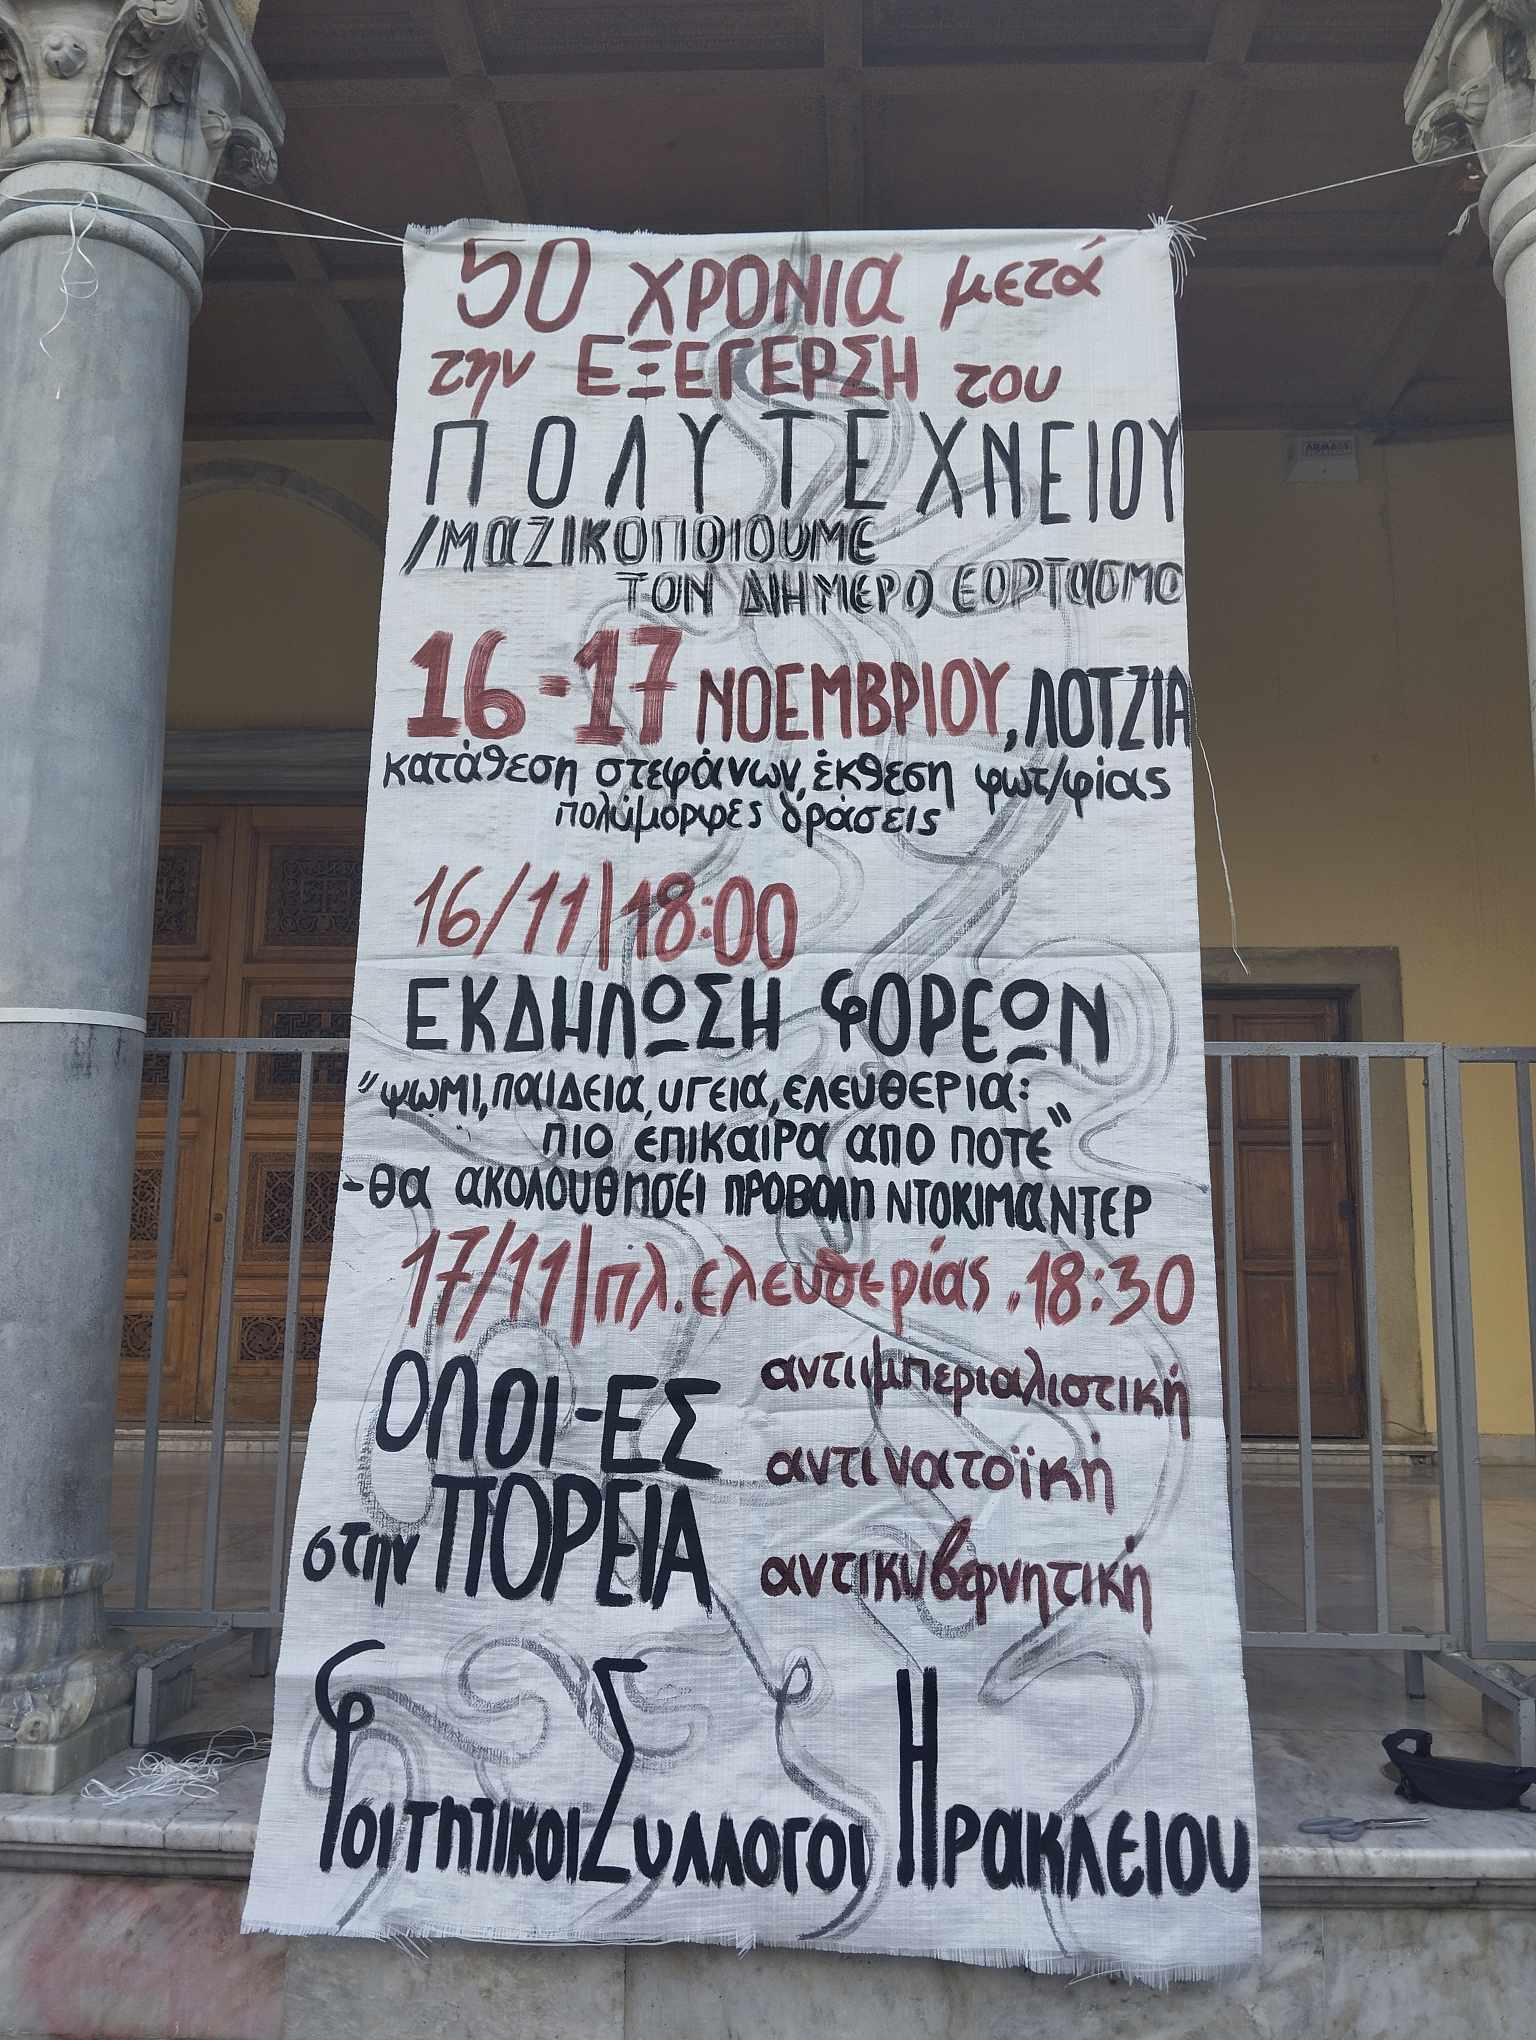 50 ΧΡΟΝΙΑ μετά
την ΕΞΕΓΕΡΣΗ του
ΠΟΛΥΤΕΧΝΕΙΟΥ
/ΜΑΖΙΚΟΠΟΙΟΥΜΕ
ΤΟΝ ΔΙΗΜΕΡΟ ΕΟΡΤΑΣΜΟ
16-17 ΝΟΕΜΒΡΙΟΥ, ΛΟΤΖΙΑ
κατάθεση στεφάνων, έκθεση φωτ/φίας
πολύμορφες δράσεις
16/11|18:00
ΕΚΔΗΛΩΣΗ ΦΟΡΕΩΝ
"ΨΩΜΙ, ΠΑΙΔΕΙΑ, ΥΓΕΙΑ, ΕΛΕΥΘΕΡΙΑ:
ΠΙΟ ΕΠΙΚΑΙΡΑ ΑΠΟ ΠΟΤΕ"
-ΘΑ ΑΚΟΛΟΥΘΗΣΕΙ ΠΡΟΒΟΛΗ ΝΤΟΚΙΜΑΝΤΕΡ
17/11|πλ. ελευθερίας . 18:30
ΟΛΟΙ-ΕΣ
στην ΠΟΡΕΙΑ
αντιιμπεριαλιστική
αντινατοϊκή
αντικυβερνητική
ΦΟΙΤΗΤΙΚΟΙ ΣΥΛΛΟΓΟΙ ΗΡΑΚΛΕΙΟΥ